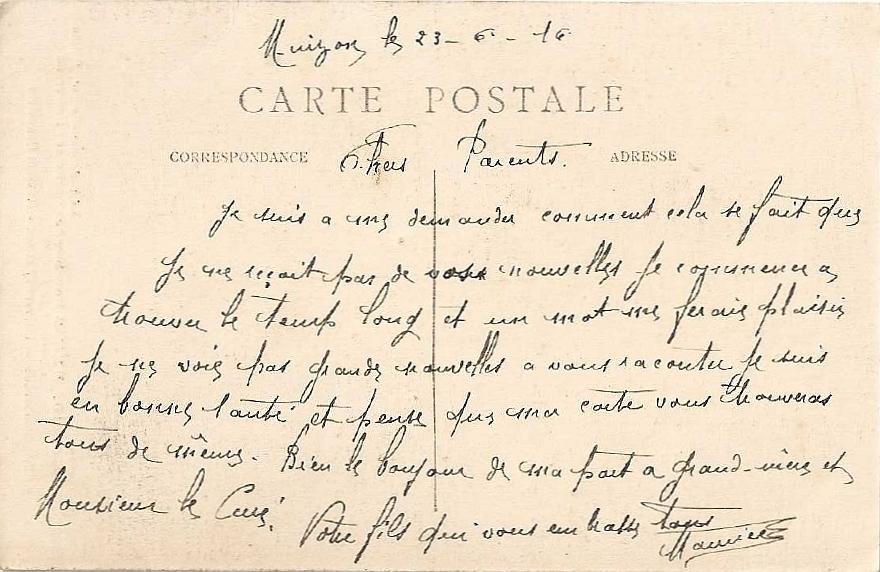 Muizon le 23-6-16
CARTE POSTALE
CORRESPONDANCE Chers Parents. ADRESSE
Je suis a me demander comment cela se fait que
Je ne reçoit pas de vos nouvelles Je commence a
trouver le temp long et un mot me ferais plaisir
Je ne vois pas grande nouvelles a vous raconter Je suis
en bonne santé et pense que ma carte vous trouveras
tous de même. Bien le bonjour de ma part a grand-mère et
Monsieur le Curé.
Votre fils qui vous embrasse tous
Maurice